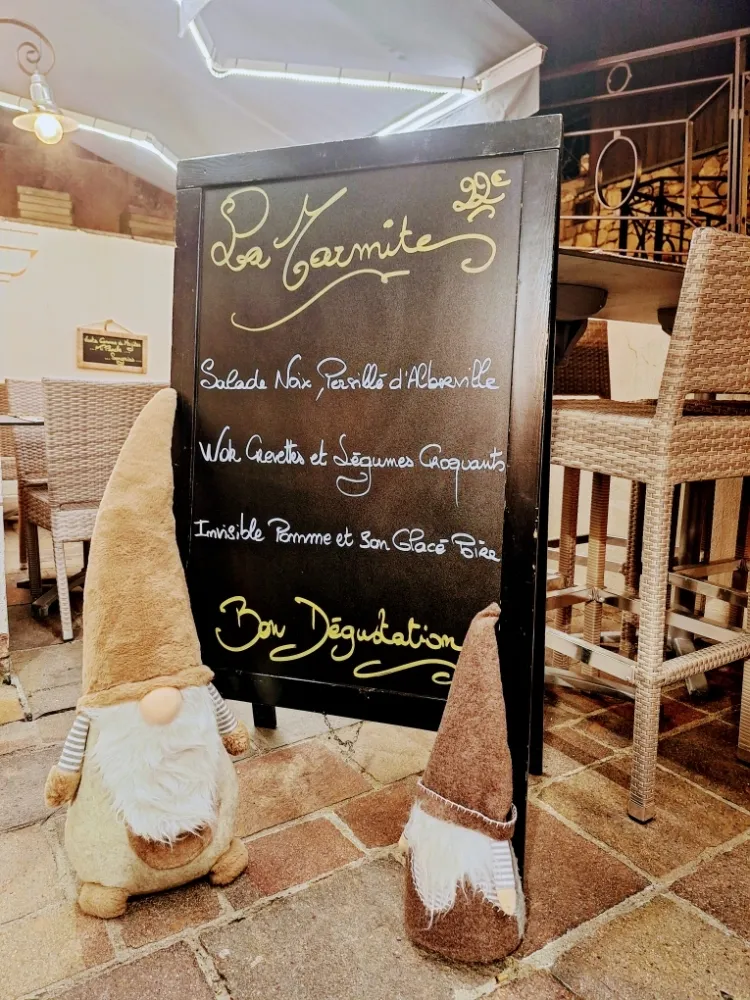 La Marmite 22€
Salade Noix, Persillé d'Alberville
Wok Crevettes et Légumes Croquants
Invisible Pomme et Son Glacé Poire
Bon Dégustation